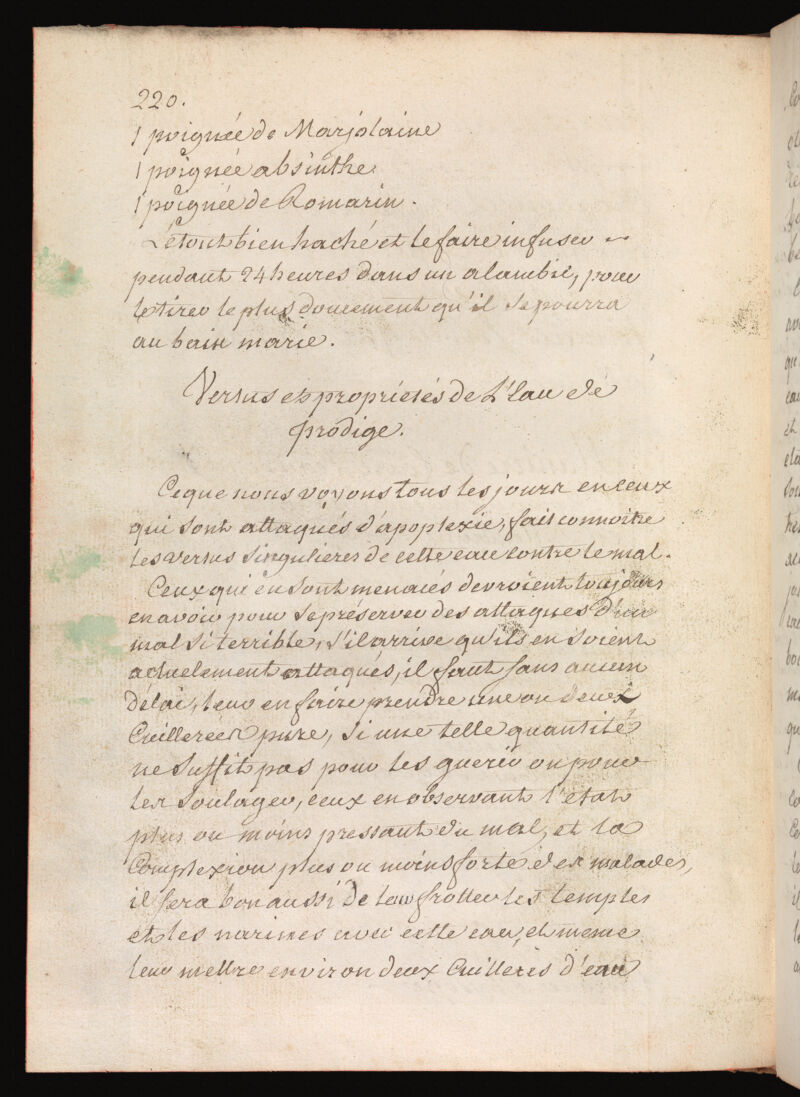 220.
1 poignée de Marjolaine
1 poignée absinthe
1 poignée de Romarin.
Le tout bien haché et le faire infuser
pendant 24 heures dans un alambic, pour
le tirer le plus doucement qu'il se pourra
au bain marie.
Vertus et proprietés de L'Eau de
prodige.
Ce que nous voyons tous les jours en ceux
qui sont attaqués d'apoplexie, fait connoitre
les vertus singulieres de cette eau contre le mal.
Ceux qui en sont menacés devroient toujours
en avoir pour se préserver des attaques d'un
mal si terrible, s'il arrive qu'ils en soient
actuelement attaqués, il faut sans aucun
délai, leur en faire prendre une ou deux
Cuillereés pure, si une telle quantité
ne suffit pas pour les guerir ou pour
les soulager, ceux en observant l'état
plus ou moins pressant du mal, et la
Complexion plus ou moins forte des malades,
il sera bon aussi de leur frotter les temples
et les narines avec cette eau, et meme
leur mettre environ deux Cuilleris d'eau